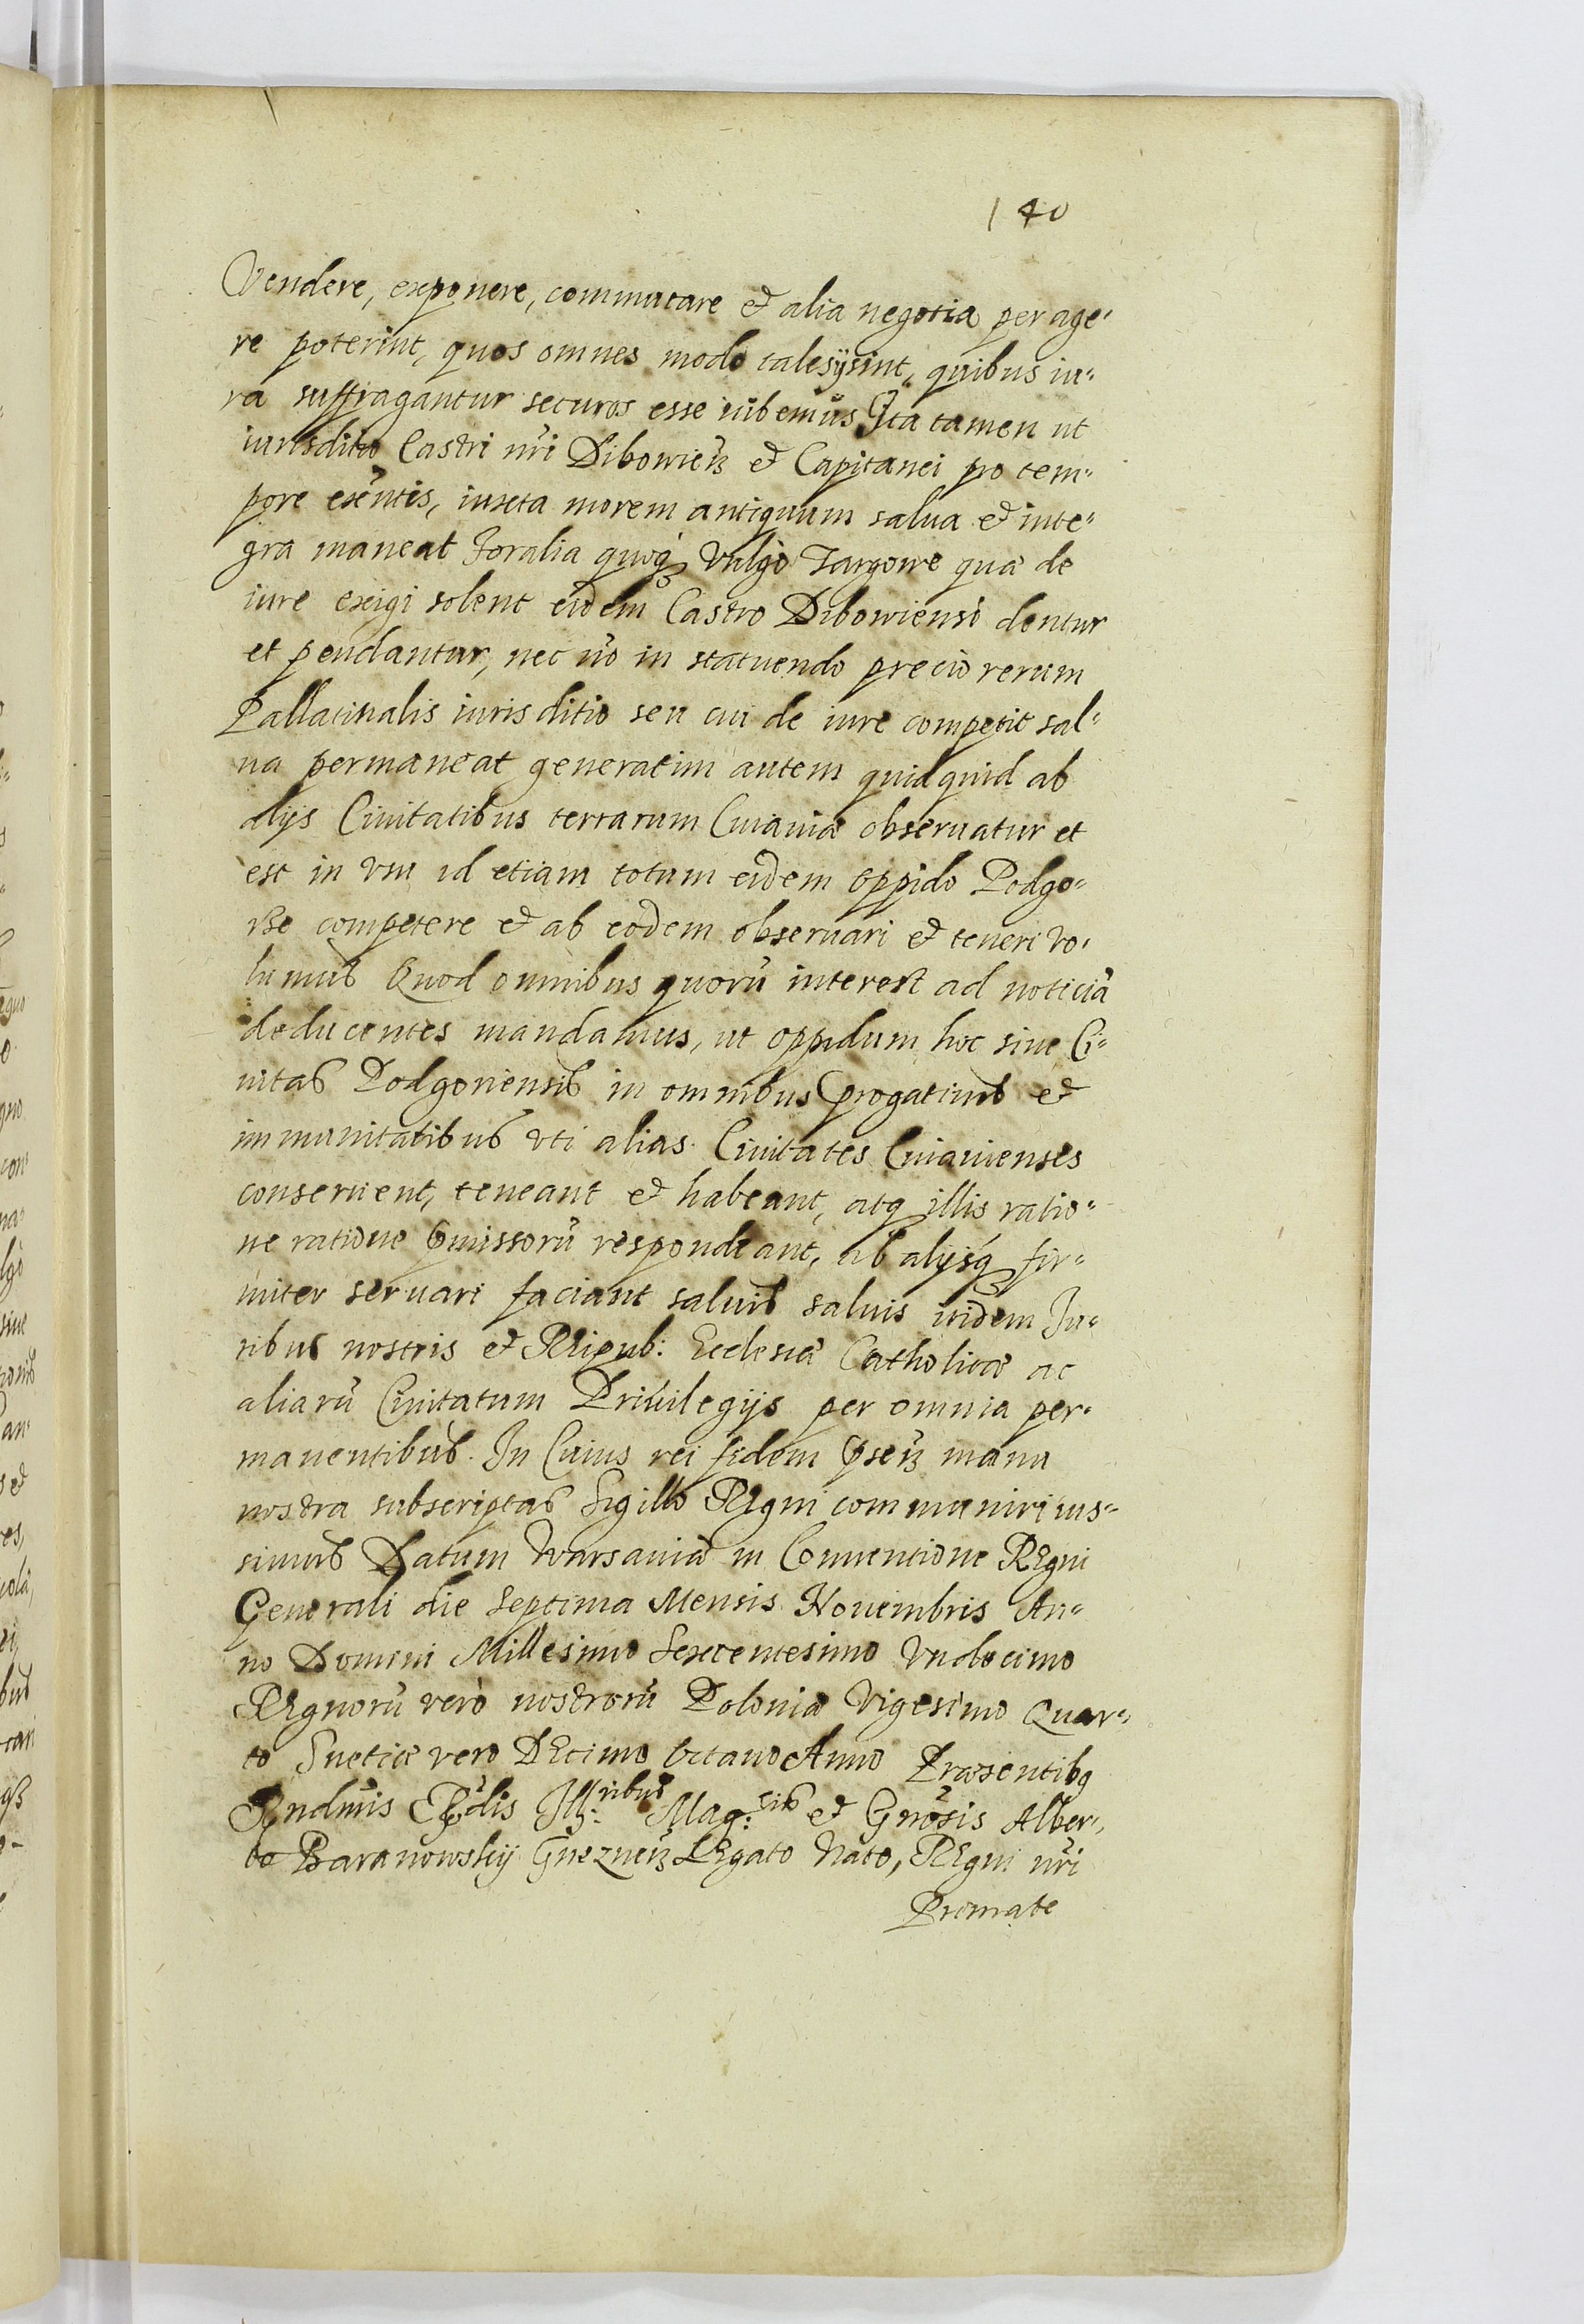 140
Vendere, exponere, commutare et alia negotia perage-
re poterint, quos omnes modo tales ÿ sint, quibus iu-
ra suffragantur securos esse iubemus Ita tamen ut
iurisditio Castri nr̃i Dibowieñ et Capitanei pro tem-
pore exñtis, iuxta morem antiquum salua et inte-
gra maneat Foralia quoq́ Vulgo Targowe quæ de
iure exigi solent eidem Castro Dibowiensi dentur
et pendantur, nec ñ in statuendo precio rerum
Pallatinalis iurisditio seu cui de iure competit sal-
ua permaneat generatim autem quidquid ab
alijs Ciuitatibus terrarum Cuiauiæ obseruatur et
est in vsu id etiam totum eidem Oppido Podgo-
rze competere et ab eodem obseruari et teneri vo-
lumus Quod omnibus quorũ interest ad noticiã
deducentes mandamus, ut oppidum hoc siue Ci-
uitas Podgoriensis in omnibus p̱rogatiuis et
immunitatibus vti alias Ciuitates Cuiauienses
conseruent, teneant et habeant, atq illis ratio-
ne ratione p̱missorũ respondeant, ab alijsq́ fir-
miter seruari faciant saluis saluis itidem Iu-
ribus nostris et REipub: Ecclesiæ Catholicæ ac
aliarũ Ciuitatum Priuilegijs per omnia per-
manentibus. In Cuius rei fidem p̱señ manu
nostra subscriptas Sigillo REgni communiri ius-
simus Datum Warsauiæ in Conuentione REgni
Generali die Septima Mensis Nouembris An-
no Domini Millesimo Sexcentesimo Vndecimo
REgnorũ vero nostrorũ Poloniæ Vigesimo Quar-
to Suetiæ vero DEcimo Octauo Anno Præsentibq
Rndmis REndis Ill:ribus Mag:cis et Gnrosis Alber-
to Baranowskÿ Gnezneñ LEgato Nato, REgni nr̃i
Primate